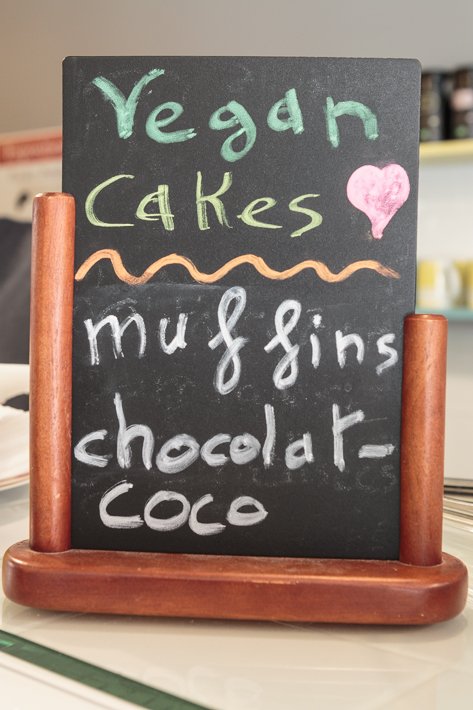 Vegan
Cakes
muffins
chocolat-
coco